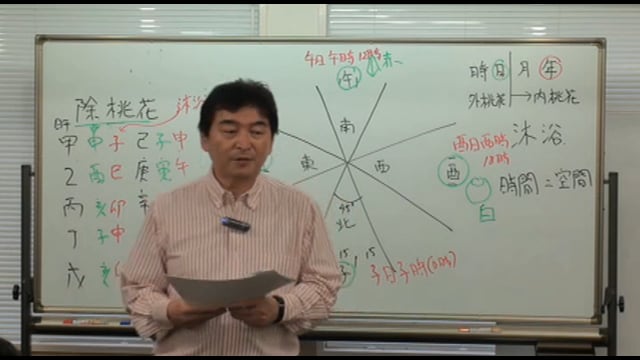 除桃花
沐浴
日干
甲 申 子 己 子 申
乙 酉 巳 庚 寅 午
丙 亥 卯 辛
丁 子 申
戊 亥
午日午時 12時
午
南
東
西
45°
北
15 15
子
子日子時(0時)
時 日 月 年
外桃花 → 内桃花
酉日酉時
18時
沐浴
酉
時間=空間
白